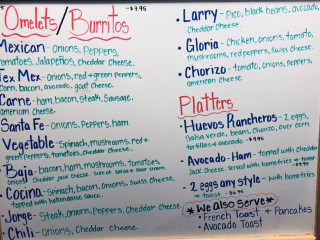 Omelets/Burritos
-$7.95
Mexican - onions, Peppers,
tomatoes, Jalapeños, Cheddar Cheese.
Tex Mex - onions, red + green Peppers,
Corn, bacon, avocado, goat cheese.
Carne - ham, bacon, steak, Sausage,
american cheese
Santa Fe - onions, Peppers, ham.
Vegetable - Spinach, mushrooms, red +
green Peppers, tomatoes, Cheddar Cheese.
Baja - bacon, ham, mushrooms, tomatoes,
onions, Cheddar Jack cheese. Side of salsa + sour cream.
Cocina - Spinach, bacon, onions, Swiss Cheese
topped with hollandaise sauce.
Jorge - Steak, onions, Peppers, Cheddar Cheese
Chili - onions, Cheddar Cheese
• Larry - Pico, black beans, avocado,
Cheddar Cheese.
• Gloria - Chicken, onions, tomato,
mushrooms, red peppers, Swiss cheese.
• Chorizo - tomato, onions, peppers,
american cheese
Platters
• Huevos Rancheros - 2 eggs,
Salsa Verde, beans, Chorizo, over corn
tortillas + avocado - $9.95
• Avocado-Ham - topped with Cheddar
Jack Cheese. Served with homefries + toast
• 2 eggs any style - with homefries
+ toast
*We also Serve*
• French Toast • Pancakes
• Avocado Toast